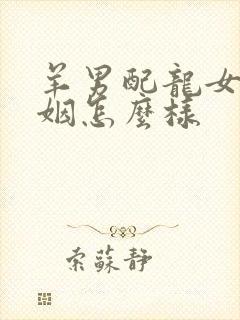 羊男配龍女
姻怎麼樣
索蘇靜